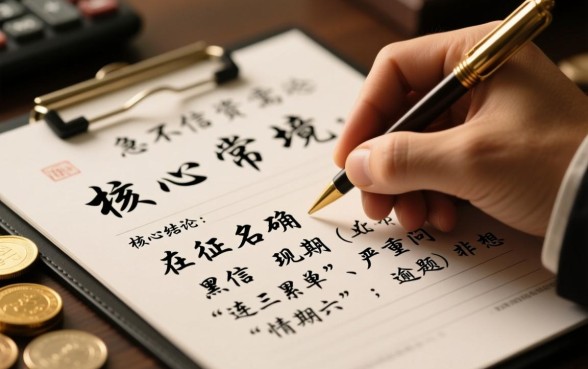 急不信资
核心常境.
核心结论:
在征名确
黑信 现期（近
“连三累单”、严重问
“情期六”；逾题）非想